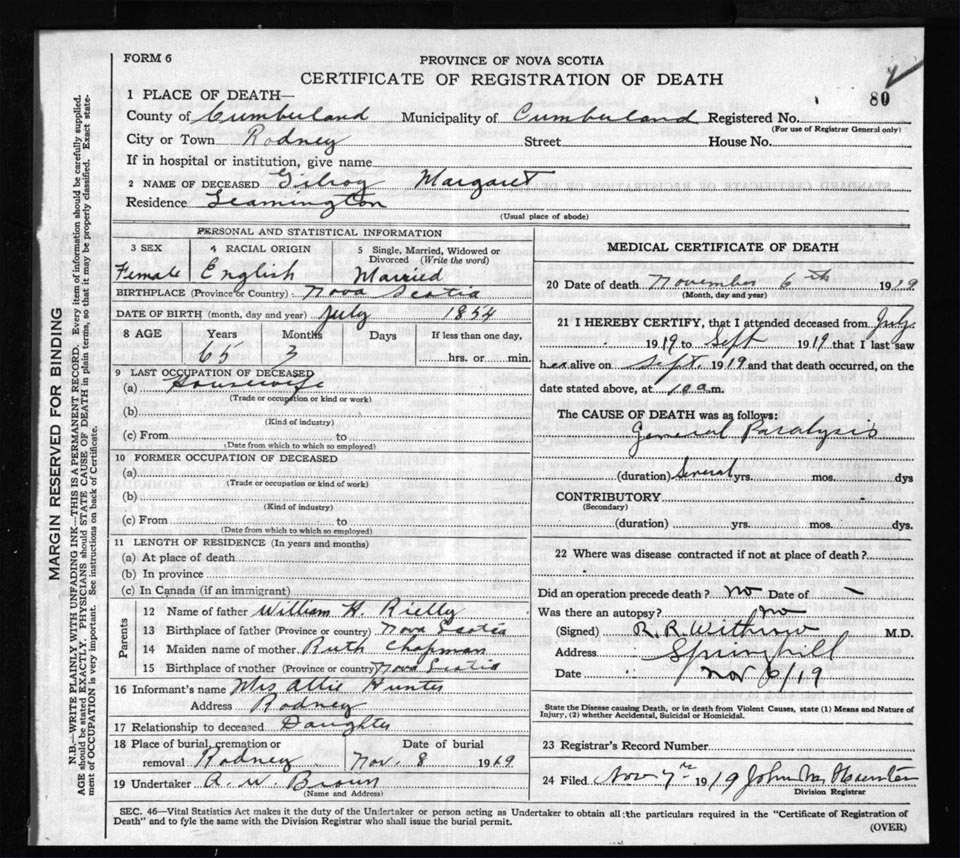 FORM 6
PROVINCE OF NOVA SCOTIA
CERTIFICATE OF REGISTRATION OF DEATH
80
1 PLACE OF DEATH—
County of Cumberland Municipality of Cumberland Registered No.
(For use of Registrar General only)
City or Town Rodney Street House No.
If in hospital or institution, give name
2 NAME OF DECEASED Gilroy Margaret
Residence Leamington
(Usual place of abode)
PERSONAL AND STATISTICAL INFORMATION
3 SEX 4 RACIAL ORIGIN 5 Single, Married, Widowed or
Divorced (Write the word)
Female English Married
BIRTHPLACE (Province or Country) Nova Scotia
DATE OF BIRTH (month, day and year) July 1854
8 AGE Years Months Days If less than one day,
65 3 hrs. or min.
9 LAST OCCUPATION OF DECEASED
(a) Housewife
(Trade or occupation or kind or work)
(b)
(Kind of industry)
(c) From to
(Date from which to which so employed)
10 FORMER OCCUPATION OF DECEASED
(a)
(Trade or occupation or kind or work)
(b)
(Kind of industry)
(c) From to
(Date from which to which so employed)
11 LENGTH OF RESIDENCE (In years and months)
(a) At place of death
(b) In province
(c) In Canada (if an immigrant)
Parents
12 Name of father William H. Rielly
13 Birthplace of father (Province or country) Nova Scotia
14 Maiden name of mother Ruth Chapman
15 Birthplace of mother (Province or country) Nova Scotia
16 Informant's name Mrs Allie Hunter
Address Rodney
17 Relationship to deceased Daughter
18 Place of burial, cremation or Date of burial
removal Rodney Nov. 8 1919
19 Undertaker A. W. Brown
(Name and Address)
MEDICAL CERTIFICATE OF DEATH
20 Date of death November 6th 1919
(Month, day and year)
21 I HEREBY CERTIFY, that I attended deceased from July
1919 to Sept 1919 that I last saw
her alive on Sept. 1919 and that death occurred, on the
date stated above, at 10 a.m.
The CAUSE OF DEATH was as follows:
General Paralysis
(duration) Several yrs. mos. dys
CONTRIBUTORY
(Secondary)
(duration) yrs. mos. dys.
22 Where was disease contracted if not at place of death?
Did an operation precede death? no Date of -
Was there an autopsy? no
(Signed) R. R. Withrow M.D.
Address Springhill
Date Nov 6/19
State the Disease causing Death, or in death from Violent Causes, state (1) Means and Nature of
Injury, (2) whether Accidental, Suicidal or Homicidal.
23 Registrar's Record Number
24 Filed Nov 7th 1919
Division Registrar
SEC. 46—Vital Statistics Act makes it the duty of the Undertaker or person acting as Undertaker to obtain all the particulars required in the "Certificate of Registration of
Death" and to fyle the same with the Division Registrar who shall issue the burial permit.
(OVER)
MARGIN RESERVED FOR BINDING
N.B.—WRITE PLAINLY WITH UNFADING INK—THIS IS A PERMANENT RECORD. Every item of information should be carefully supplied.
AGE should be stated EXACTLY. PHYSICIANS should STATE CAUSE OF DEATH in plain terms, so that it may be properly classified. Exact state-
ment of OCCUPATION is very important. See instructions on back of Certificate.